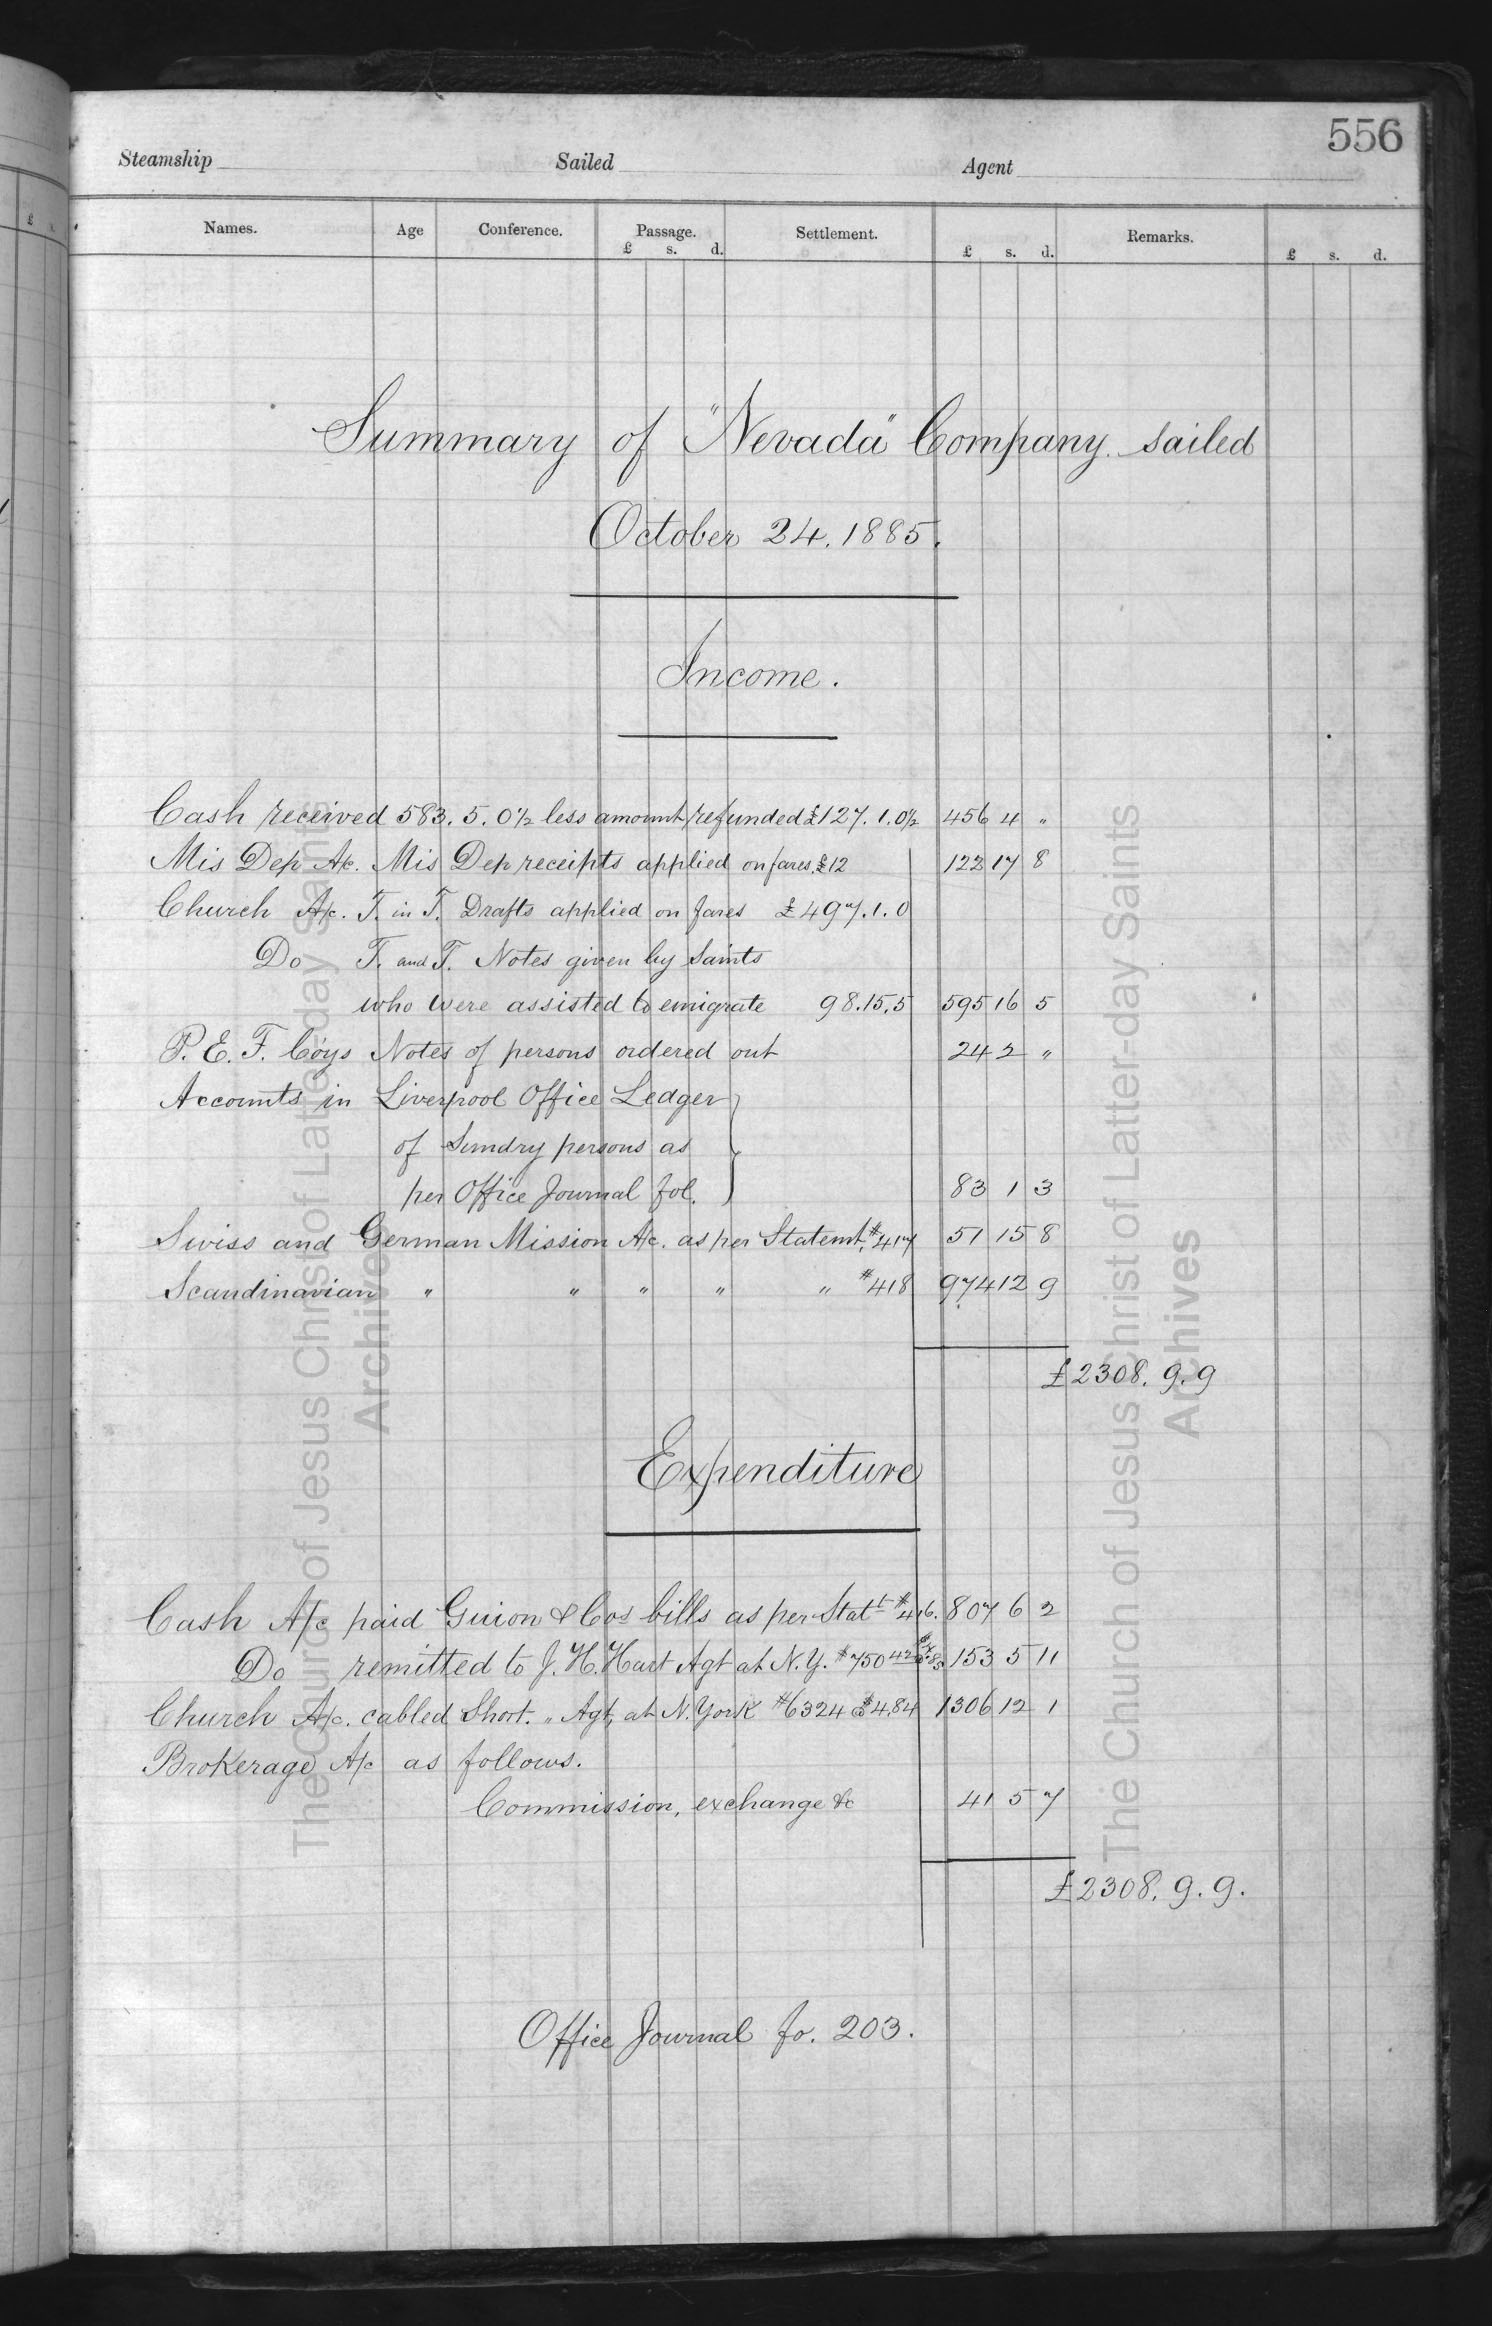 556
Steamship Sailed Agent
Names. Age Conference. Passage. Settlement. Remarks.
£ s. d. £ s. d. £ s. d.
Summary of "Nevada" Company. sailed
October 24. 1885.
Income.
Cash received 583. 5. 0½ less amount refunded £127. 1. 0½ 456 4 "
Mis Dep A/c. Mis Dep receipts applied on fares. £12 122 17 8
Church A/c. T. in T. Drafts applied on fares £497. 1. 0
Do T. and T. Notes given by Saints
who were assisted to emigrate 98. 15. 5 595 16 5
P. E. F. Coys Notes of persons ordered out 24 2 "
Accounts in Liverpool Office Ledger
of Sundry persons as
per Office Journal fol. 83 1 3
Swiss and German Mission A/c. as per Statemt. #417 51 15 8
Scandinavian " " " " " #418 974 12 9
£2308. 9. 9
Expenditure
Cash A/c paid Guion & Cos bills as per Statt #416. 807 6 2
Do remitted to J. H. Hart Agt at N. Y. $750 42 153 5 11
Church A/c. cabled Short. " Agt, at N. York $6324 @ $4.84 1306 12 1
Brokerage A/c as follows.
Commission, exchange &c 41 5 7
£2308. 9. 9.
Office Journal fo. 203.
The Church of Jesus Christ of Latter-day Saints
Archives
The Church of Jesus Christ of Latter-day Saints
Archives